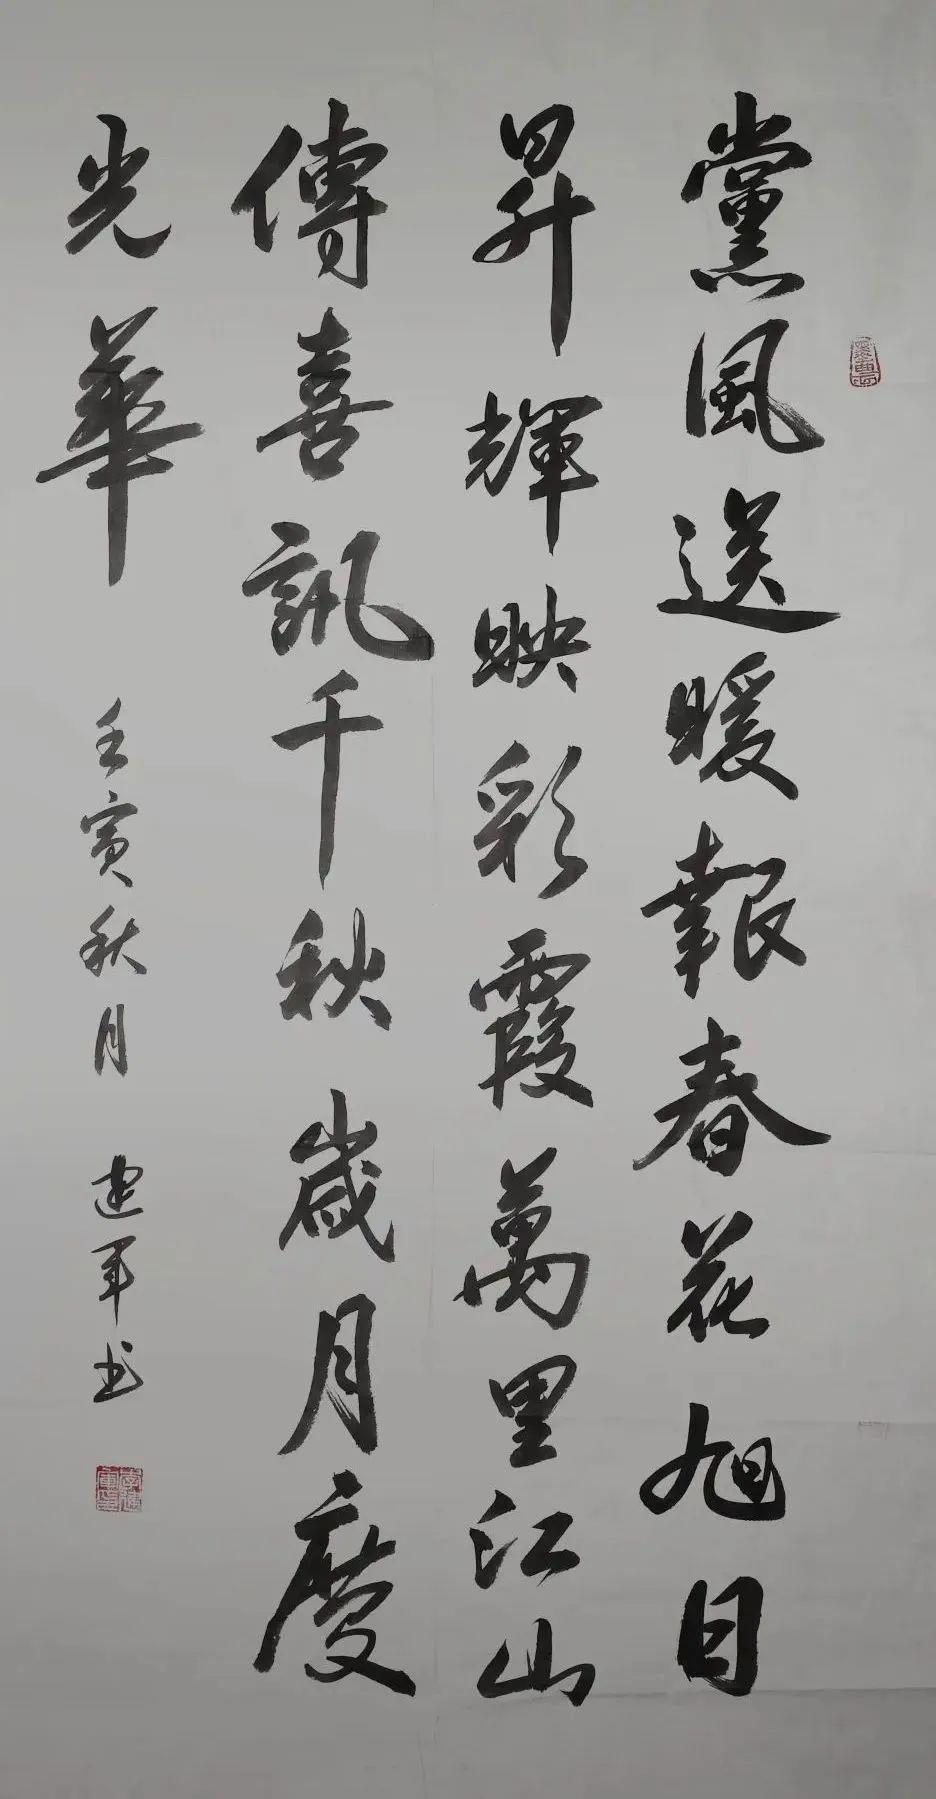 黨風送暖報春花旭日
昇輝映彩霞萬里江山
傳喜訊千秋歲月慶
光華
壬寅秋月 建军书